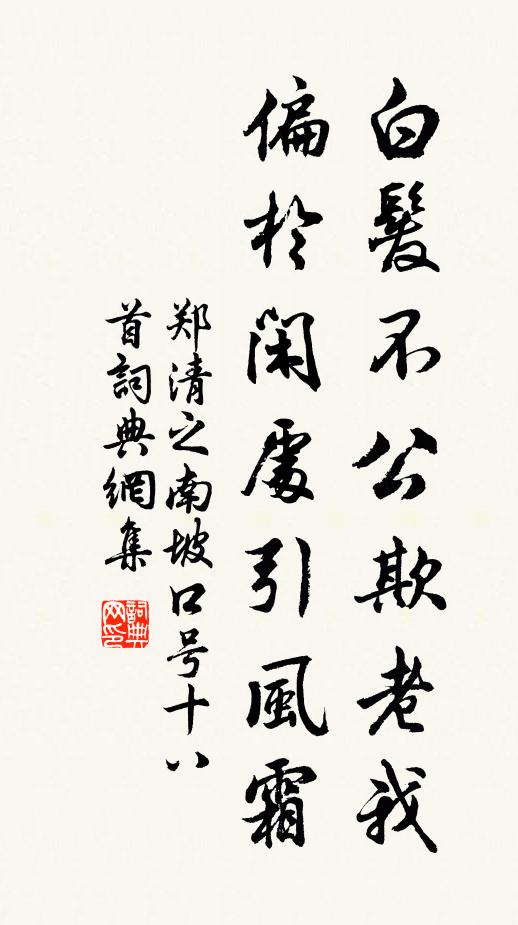 白髮不公欺老我
偏於閑處引風霜
郑清之南坡口号十八
首詞典網集
詞典网印